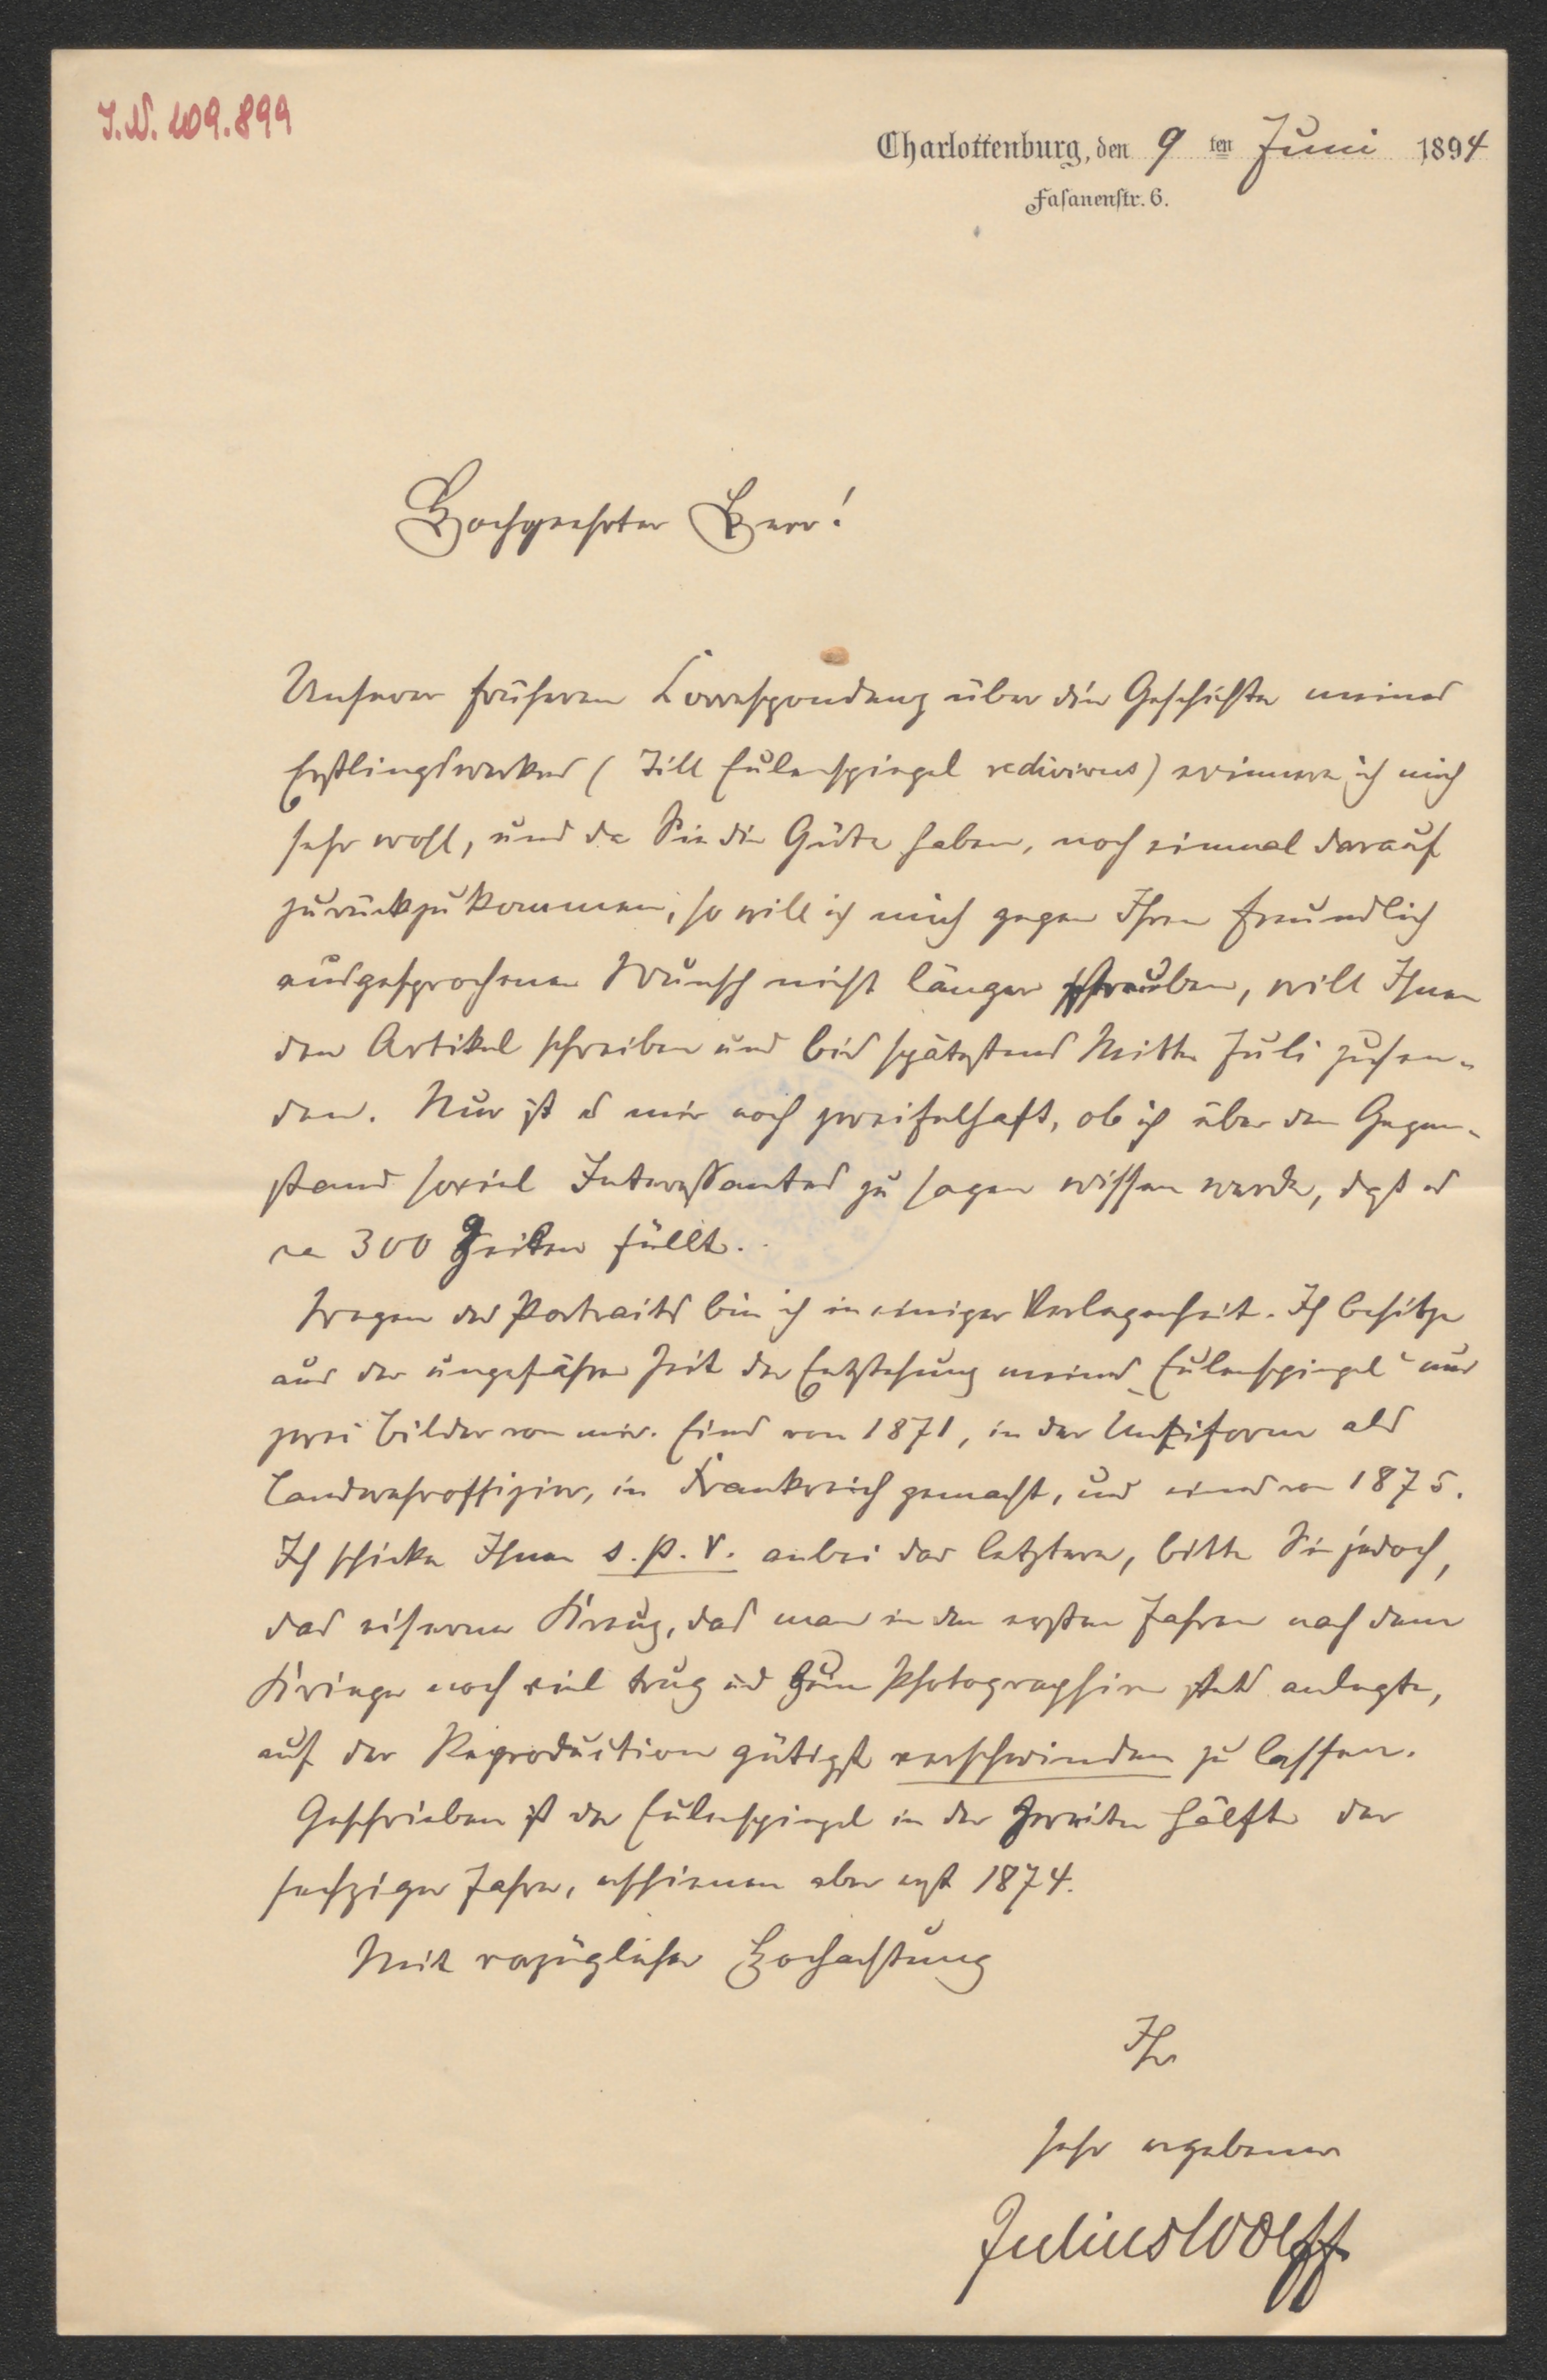 I.N. 109.899
Charlottenburg, den 9 ten Juni 1894
Fasanenstr. 6.
Hochgeehrter Herr!
Unserer früheren Correspondenz über die Geschichte meines
Erstlingswerkes (Till Eulenspiegel redivivus) erinnere ich mich
sehr wohl, und da Sie die Güte haben, noch einmal darauf
zurückzukommen, so will ich mich gegen Ihren freundlich
ausgesprochenen Wunsch nicht länger sträuben, will Ihnen
den Artikel schreiben und bis spätestens Mitte Juli zusen-
den. Nur ist es mir noch zweifelhaft, ob ich über den Gegen-
stand soviel Interessantes zu sagen wissen werde, daß es
ca 300 Zeilen füllt.
Wegen des Portraits bin ich in einiger Verlegenheit. Ich besitze
aus der ungefähren Zeit der Entstehung meines „Eulenspiegel“ nur
zwei Bilder von mir. Eines von 1871, in der Uniform als
Landwehroffizier, in Frankreich gemacht, und eines von 1875.
Ich schicke Ihnen s. p. r. anbei das letztere, bitte Sie jedoch,
das eiserne Kreuz, das man in den ersten Jahren nach dem
Kriege noch viel trug und zum Photographiren stets anlegte,
auf der Reproduction gütigst verschwinden zu lassen.
Geschrieben ist der Eulenspiegel in der zweiten Hälfte der
sechziger Jahre, erschienen aber erst 1874.
Mit vorzüglicher Hochachtung
Ihr
sehr ergebener
Julius Wolff.